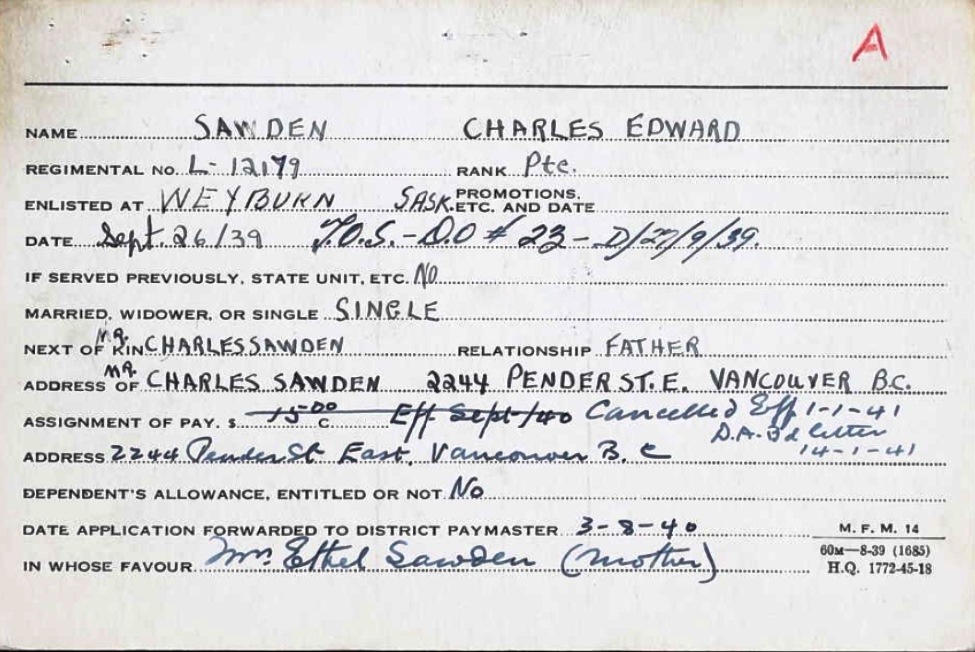 A
NAME SAWDEN CHARLES EDWARD
REGIMENTAL NO. L-12179 RANK Pte.
ENLISTED AT WEYBURN SASK. PROMOTIONS, ETC. AND DATE
DATE Sept. 26/39 T.O.S. - D.O # 23 - D/27/9/39.
IF SERVED PREVIOUSLY, STATE UNIT, ETC. NO
MARRIED, WIDOWER, OR SINGLE SINGLE
NEXT OF KIN MR. CHARLES SAWDEN RELATIONSHIP FATHER
ADDRESS OF MR. CHARLES SAWDEN 2244 PENDER ST. E. VANCOUVER B.C.
ASSIGNMENT OF PAY. $ 15.00 C. Eff Sept/40 Cancelled Eff 1-1-41
D.A.3d letter
14-1-41
ADDRESS 2244 Pender St East, Vancouver B. C
DEPENDENT'S ALLOWANCE, ENTITLED OR NOT No
DATE APPLICATION FORWARDED TO DISTRICT PAYMASTER 3-8-40
IN WHOSE FAVOUR Mrs. Ethel Sawden (Mother)
M. F. M. 14
60M—8-39 (1685)
H.Q. 1772-45-18